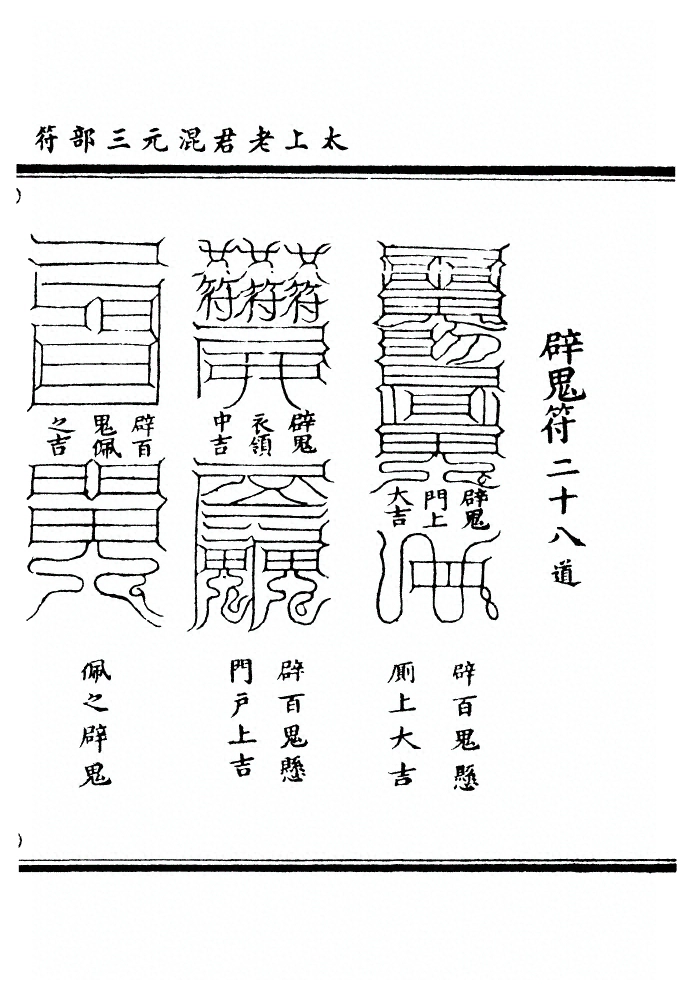 太上老君混元三部符
辟鬼符二十八道
辟鬼
門上
大吉
辟百鬼懸
厠上大吉
辟鬼
衣領
中吉
辟百鬼懸
門戸上吉
辟百
鬼佩
之吉
佩之辟鬼